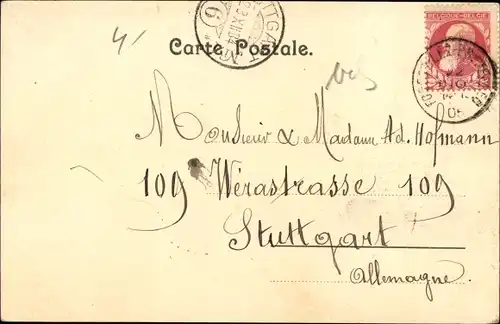 BELGIQUE-BELGIË
STUTTGART
6
Carte Postale.
Monsieur & Madame Ad. Hofmann
109 Wérastrasse 109
Stuttgart
Allemagne.